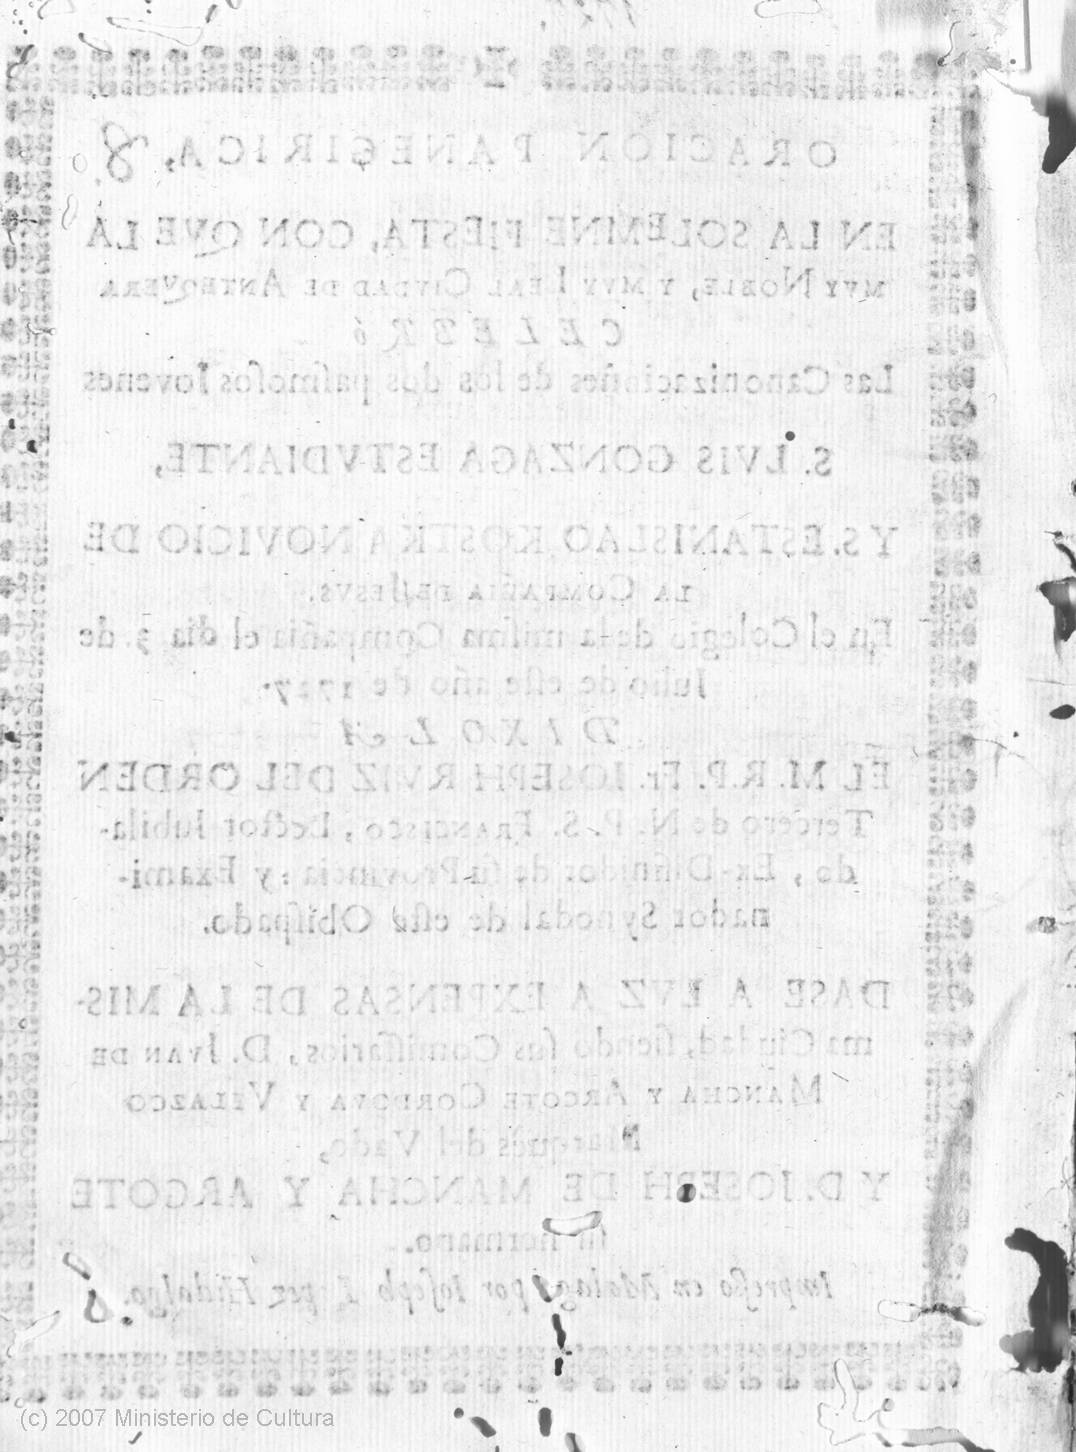 1727.
ORACION PANEGIRICA, 8.
EN LA SOLEMNE FIESTA, CON QVE LA
MVY NOBLE, Y MVY LEAL CIVDAD DE ANTEQVERA
CELEBRÓ
Las Canonizaciones de los dos pasmosos Jovenes
S. LVIS GONZAGA ESTVDIANTE,
Y S. ESTANISLAO KOSTKA NOVICIO DE
LA COMPAÑIA DE JESVS.
En el Colegio de la misma Compañia el dia 3. de
Julio de este año de 1727.
DIXOLA
EL M.R.P. Fr. JOSEPH RVIZ DEL ORDEN
Tercero de N. P. S. FRANCISCO, Lector Jubila-
do, Ex-Difinidor de su Provincia: y Exami-
nador Synodal de este Obispado.
DASE A LVZ A EXPENSAS DE LA MIS-
ma Ciudad, siendo sus Comissarios, D. JVAN DE
MANCHA Y ARGOTE CORDOVA Y VELAZCO
Marquès del Vado,
Y D. JOSEPH DE MANCHA Y ARGOTE
su hermano.
Impresso en Malaga por Joseph Lopez Hidalgo.
(c) 2007 Ministerio de Cultura